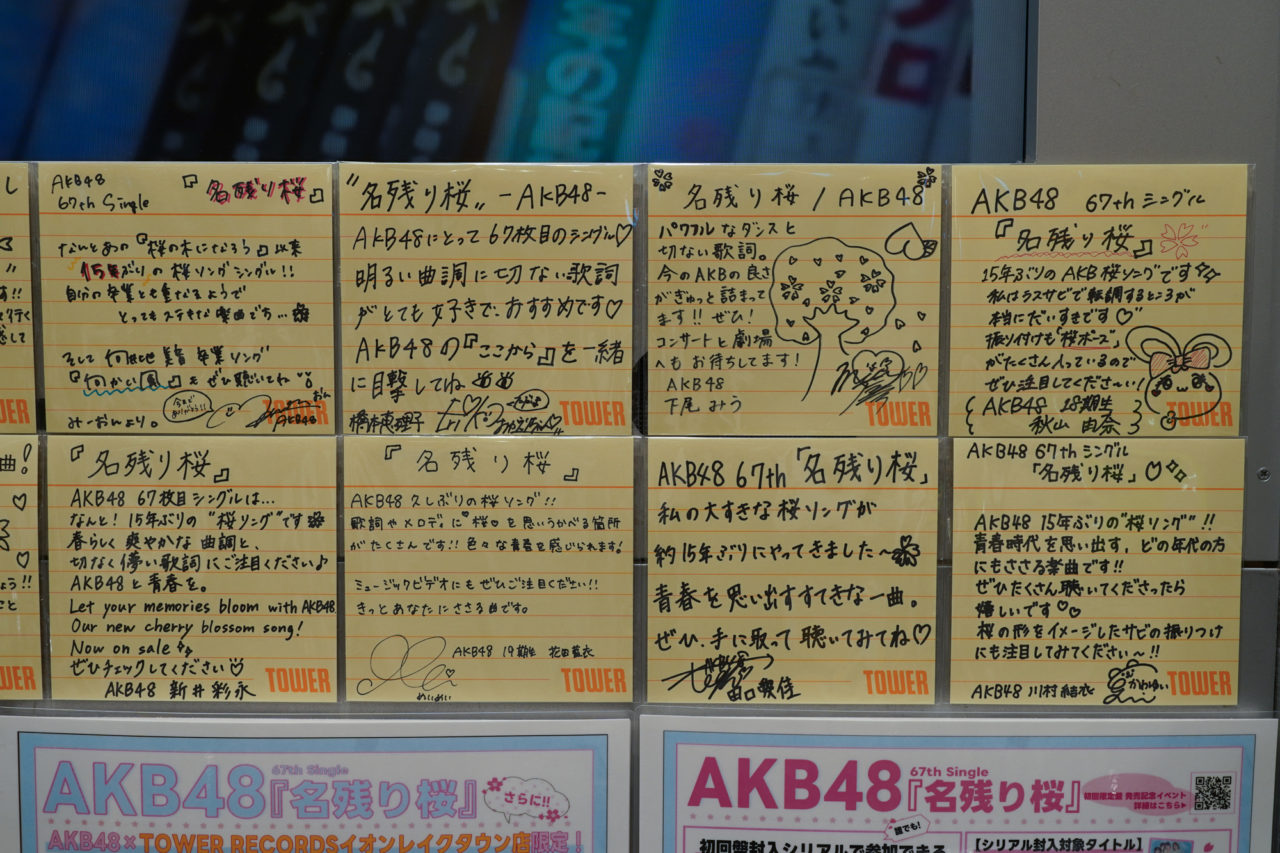 AKB48
67th Single
『名残り桜』
なんとあの『桜の木になろう』以来
15年ぶりの桜ソングシングル!!
自分の卒業とも重なるようで
とってもステキな楽曲です…
そして 卒業ソング
『何かい風』もぜひ聴いてね
みーおんより。
今までありがとう!!
AKB48
TOWER
"名残り桜" -AKB48-
AKB48にとって67枚目のシングル♡
明るい曲調に切ない歌詞
がとても好きで、おすすめです♡
AKB48の『ここから』を一緒
に目撃してね
橋本恵理子
TOWER
名残り桜 / AKB48
パワフルなダンスと
切ない歌詞。
今のAKBの良さ
がぎゅっと詰まって
ます!! ぜひ!
コンサートと劇場
へもお待ちしてます!
AKB48
下尾みう
TOWER
AKB48 67thシングル
『名残り桜』
15年ぶりのAKB桜ソングです
私はラスサビで転調するところが
本当にだいすきです♡"
振り付けも"桜ポーズ"
がたくさん入っているので
ぜひ注目してくださ~い!
AKB48 18期生
秋山由奈
TOWER
『名残り桜』
AKB48 67枚目シングルは...
なんと!15年ぶりの"桜ソング"です
春らしく爽やかな曲調と、
切なく儚い歌詞にご注目ください♪
AKB48と青春を。
Let your memories bloom with AKB48
Our new cherry blossom song!
Now on sale
ぜひチェックしてください
AKB48 新井彩永
TOWER
『名残り桜』
AKB48 久しぶりの桜ソング!!
歌詞やメロディに"桜"を思いうかべる箇所
がたくさんです!! 色々な青春を感じられます!
ミュージックビデオにもぜひご注目ください!!
きっとあなたにささる曲です。
AKB48 19期生 花田藍衣
めいめい
TOWER
AKB48 67th「名残り桜」
私の大すきな桜ソングが
約15年ぶりにやってきました~
青春を思い出すすてきな一曲。
ぜひ、手に取って聴いてみてね♡
田口愛佳
TOWER
AKB48 67thシングル
「名残り桜」♡
AKB48 15年ぶりの"桜ソング"!!
青春時代を思い出す、どの年代の方
にもささる楽曲です!!
ぜひたくさん聴いてくださったら
嬉しいです♡♡
桜の形をイメージしたサビの振りつけ
にも注目してみてください~!!
AKB48 川村結衣
かわゆい
TOWER
AKB48
67th Single
『名残り桜』
さらに!!
AKB48×TOWER RECORDSイオンレイクタウン店限定!
AKB48
67th Single
『名残り桜』
初回限定盤 発売記念イベント
詳細はこちら▶
誰でも!
初回盤封入シリアルで参加できる
【シリアル封入対象タイトル】